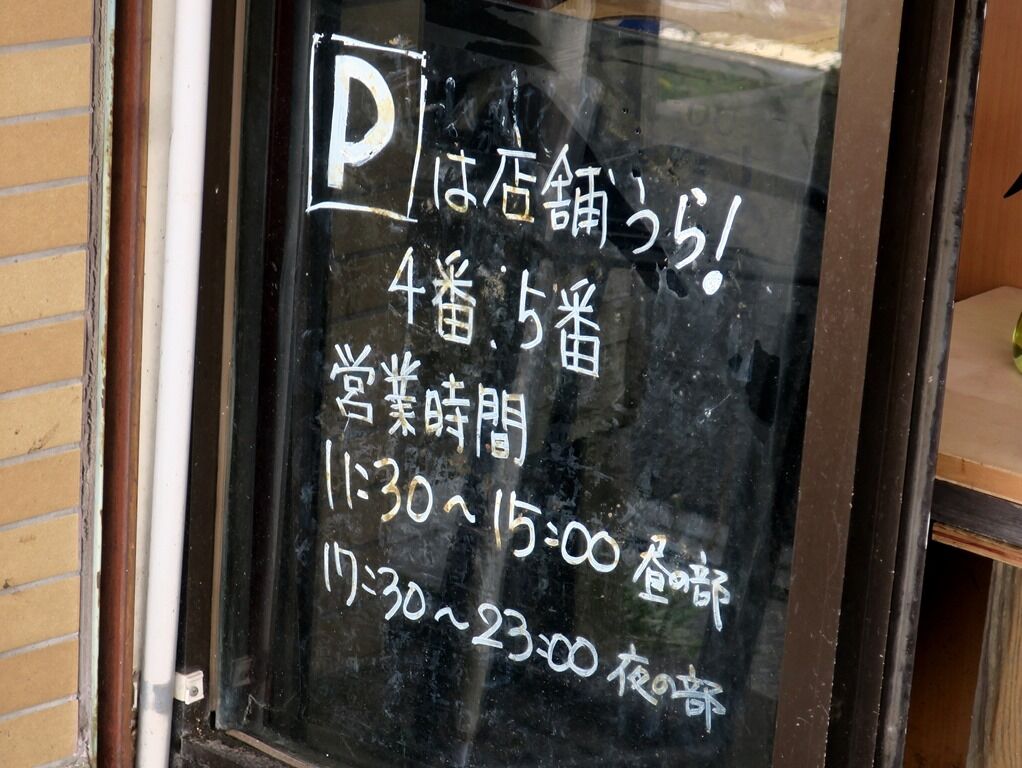 Pは店舗うら!
4番.5番
営業時間
11:30~15:00 昼の部
17:30~23:00 夜の部